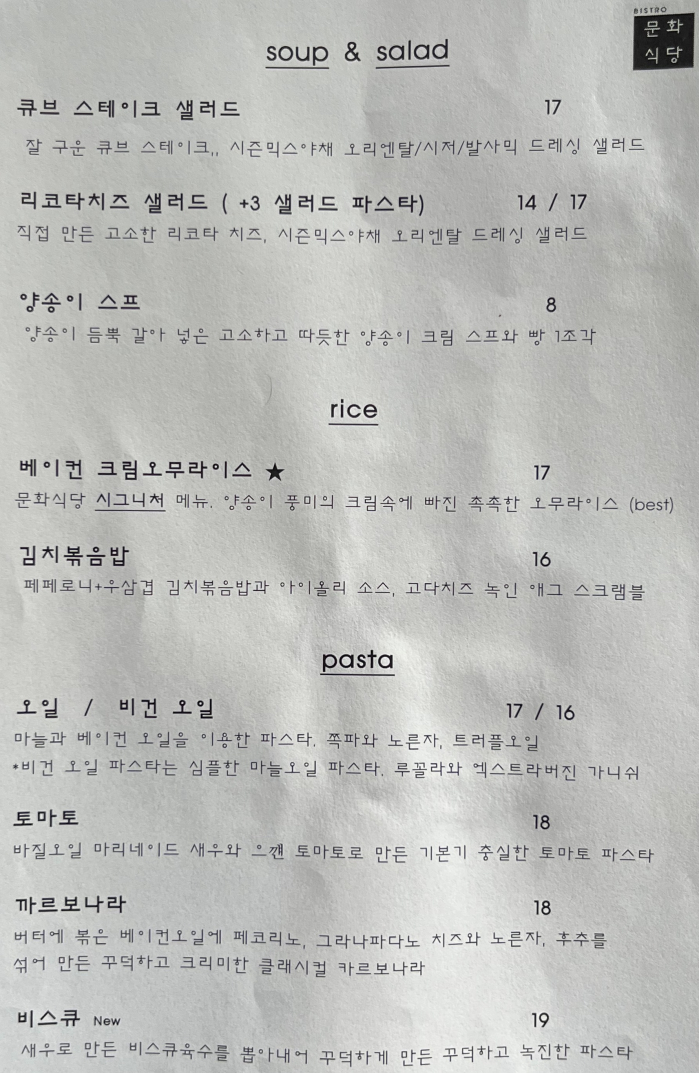 BISTRO
문화
식당
soup & salad
큐브 스테이크 샐러드 17
잘 구운 큐브 스테이크,, 시즌믹스야채 오리엔탈/시저/발사믹 드레싱 샐러드
리코타치즈 샐러드 ( +3 샐러드 파스타) 14 / 17
직접 만든 고소한 리코타 치즈, 시즌믹스야채 오리엔탈 드레싱 샐러드
양송이 스프 8
양송이 듬뿍 갈아 넣은 고소하고 따듯한 양송이 크림 스프와 빵 1조각
rice
베이컨 크림오무라이스 ★ 17
문화식당 시그니처 메뉴. 양송이 풍미의 크림속에 빠진 촉촉한 오무라이스 (best)
김치볶음밥 16
페페로니+우삼겹 김치볶음밥과 아이올리 소스, 고다치즈 녹인 애그 스크램블
pasta
오일 / 비건 오일 17 / 16
마늘과 베이컨 오일을 이용한 파스타. 쪽파와 노른자, 트러플오일
*비건 오일 파스타는 심플한 마늘오일 파스타. 루꼴라와 엑스트라버진 가니쉬
토마토 18
바질오일 마리네이드 새우와 으깬 토마토로 만든 기본기 충실한 토마토 파스타
까르보나라 18
버터에 볶은 베이컨오일에 페코리노, 그라나파다노 치즈와 노른자, 후추를
섞어 만든 꾸덕하고 크리미한 클래시컬 카르보나라
비스큐 New 19
새우로 만든 비스큐육수를 뽑아내어 꾸덕하게 만든 꾸덕하고 녹진한 파스타